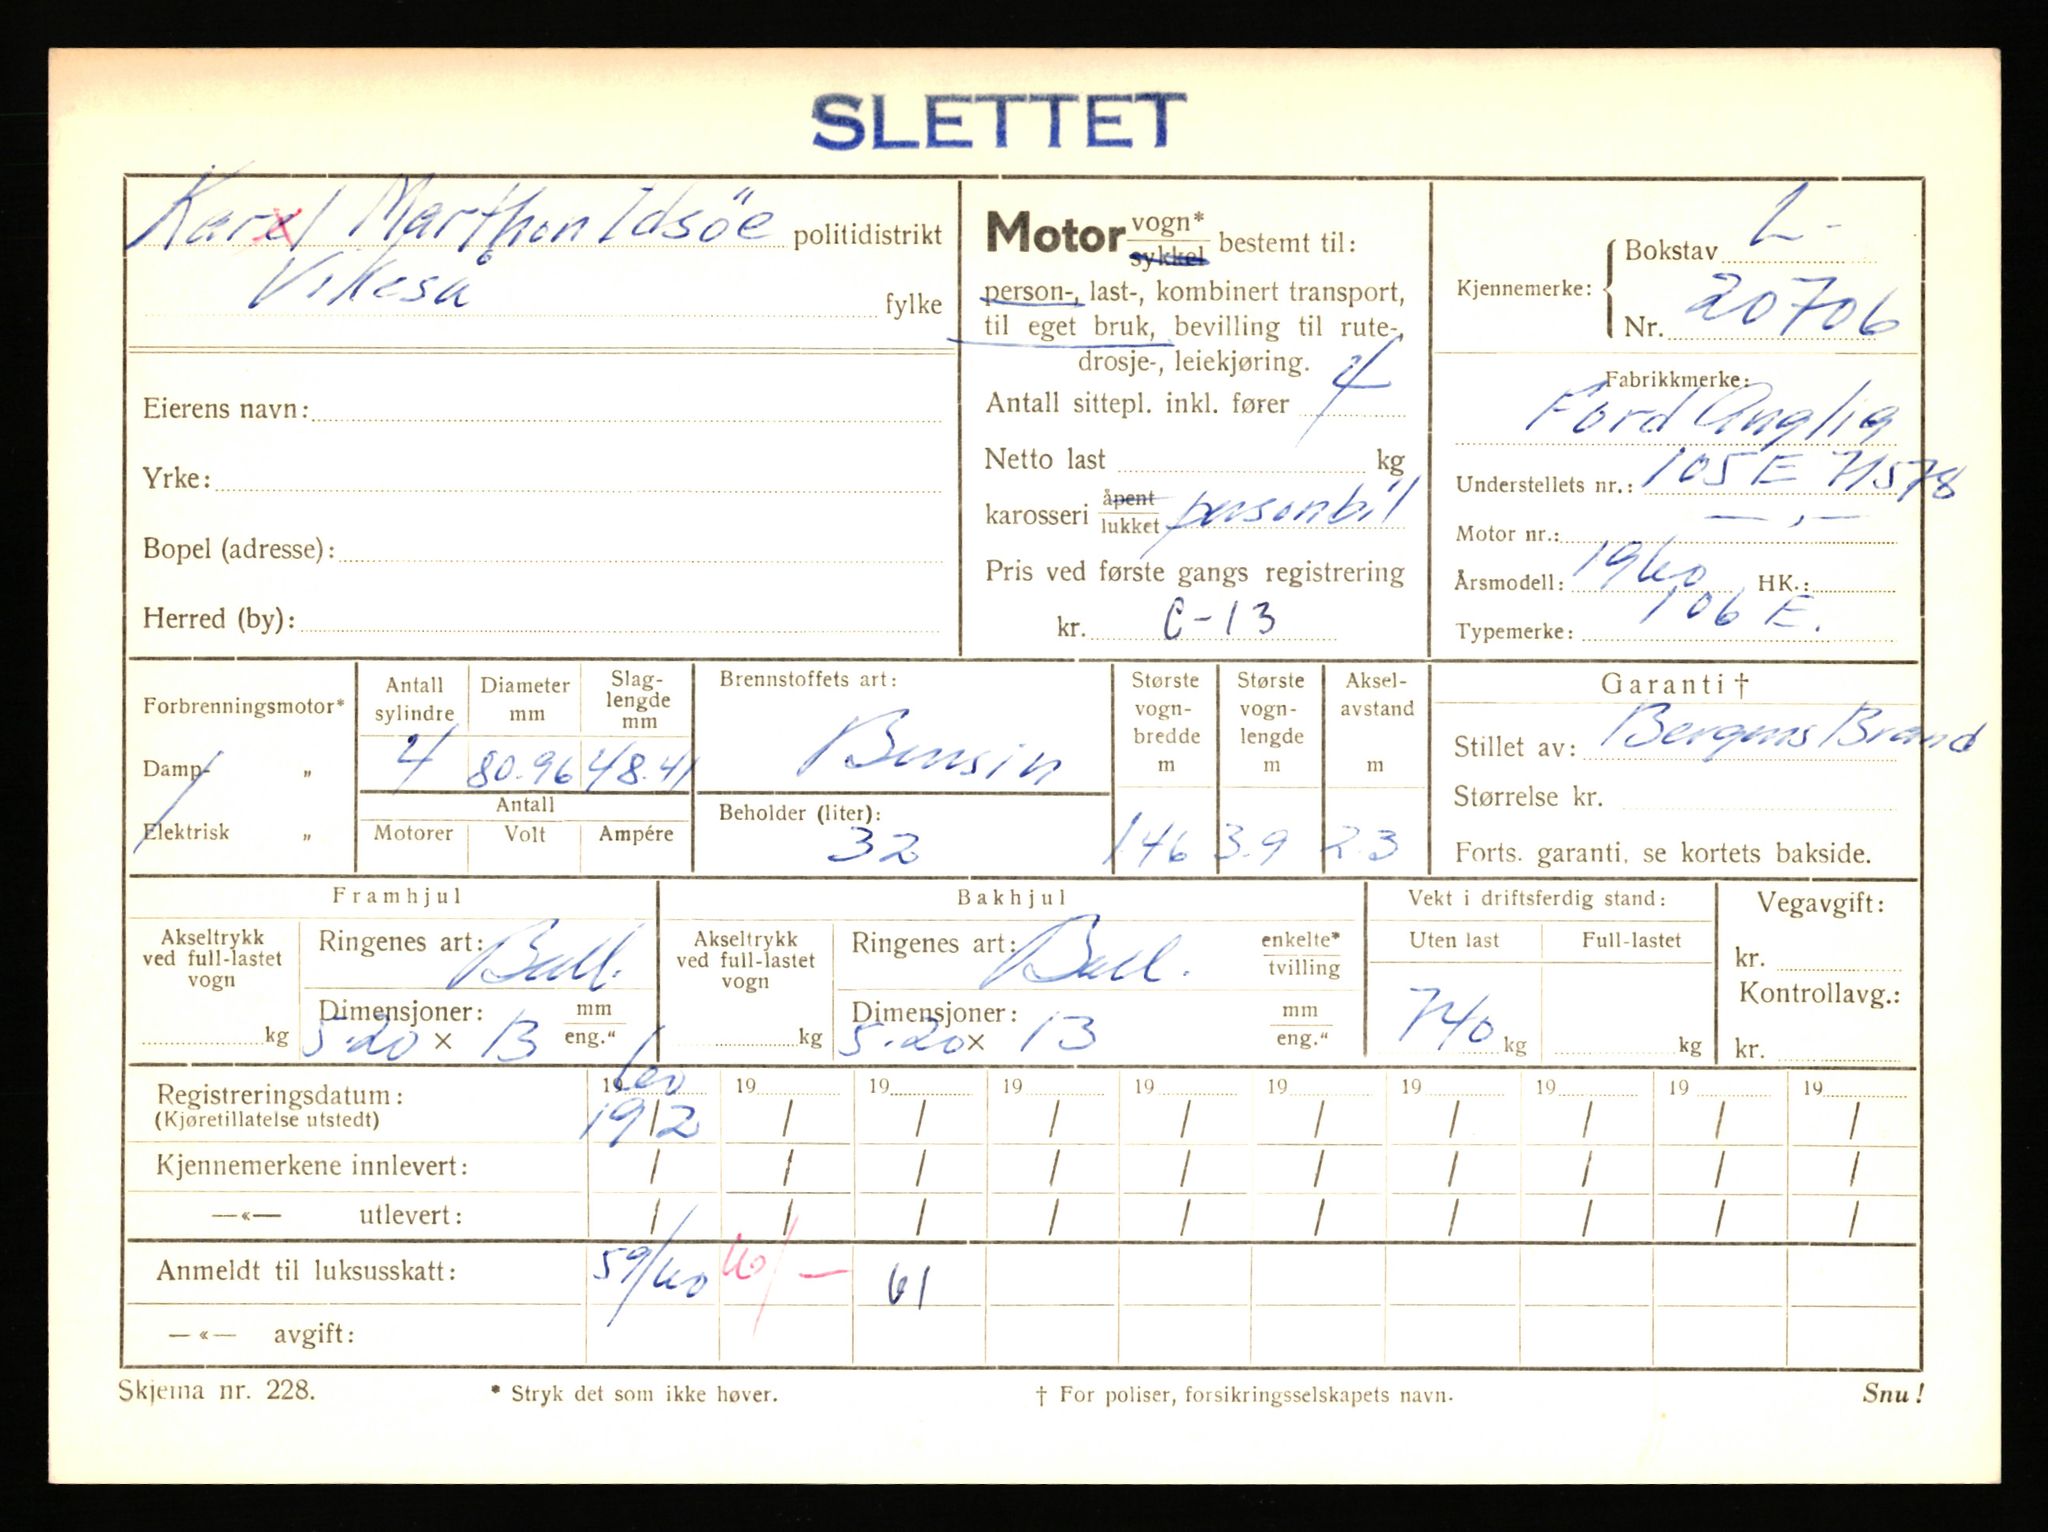 SLETTET
Karl Marthon Idsöe politidistrikt
Vikeså fylke
Eierens navn:
Yrke:
Bopel (adresse):
Herred (by):
Motor vogn* sykkel bestemt til:
person-, last-, kombinert transport,
til eget bruk, bevilling til rute-,
drosje-, leiekjøring.
Antall sittepl. inkl. fører 4
Netto last kg
karosseri åpent lukket personbil
Pris ved første gangs registrering
kr. C-13
Kjennemerke: Bokstav L-
Nr. 20706
Fabrikkmerke:
Ford Anglia
Understellets nr.: 105E 71578
Motor nr.: — , —
Årsmodell: 1960 HK.:
Typemerke: 106 E.
Forbrenningsmotor*
Damp- „
Elektrisk „
Antall sylindre 4
Diameter mm 80.96
Slag-lengde mm 48.41
Antall
Motorer Volt Ampére
Brennstoffets art:
Bensin
Beholder (liter):
32
Største vogn-bredde m 1.46
Største vogn-lengde m 3.9
Aksel-avstand m 2.3
Garanti †
Stillet av: Bergens Brand
Størrelse kr.
Forts. garanti, se kortets bakside.
Framhjul
Akseltrykk ved full-lastet vogn kg
Ringenes art: Ball.
Dimensjoner: mm
5.20 × 13 eng."
Bakhjul
Akseltrykk ved full-lastet vogn kg
Ringenes art: Ball. enkelte* tvilling
Dimensjoner: mm
5.20 × 13 eng."
Vekt i driftsferdig stand:
Uten last Full-lastet
740 kg kg
Vegavgift:
kr.
Kontrollavg.:
kr.
Registreringsdatum: 1960 19 19 19 19 19 19 19 19 19
(Kjøretillatelse utstedt) 19/12 / / / / / / / / /
Kjennemerkene innlevert: / / / / / / / / / /
—«— utlevert: / / / / / / / / / /
Anmeldt til luksusskatt: 59/60 60/— 61
—«— avgift:
Skjema nr. 228. * Stryk det som ikke høver. † For poliser, forsikringsselskapets navn. Snu!